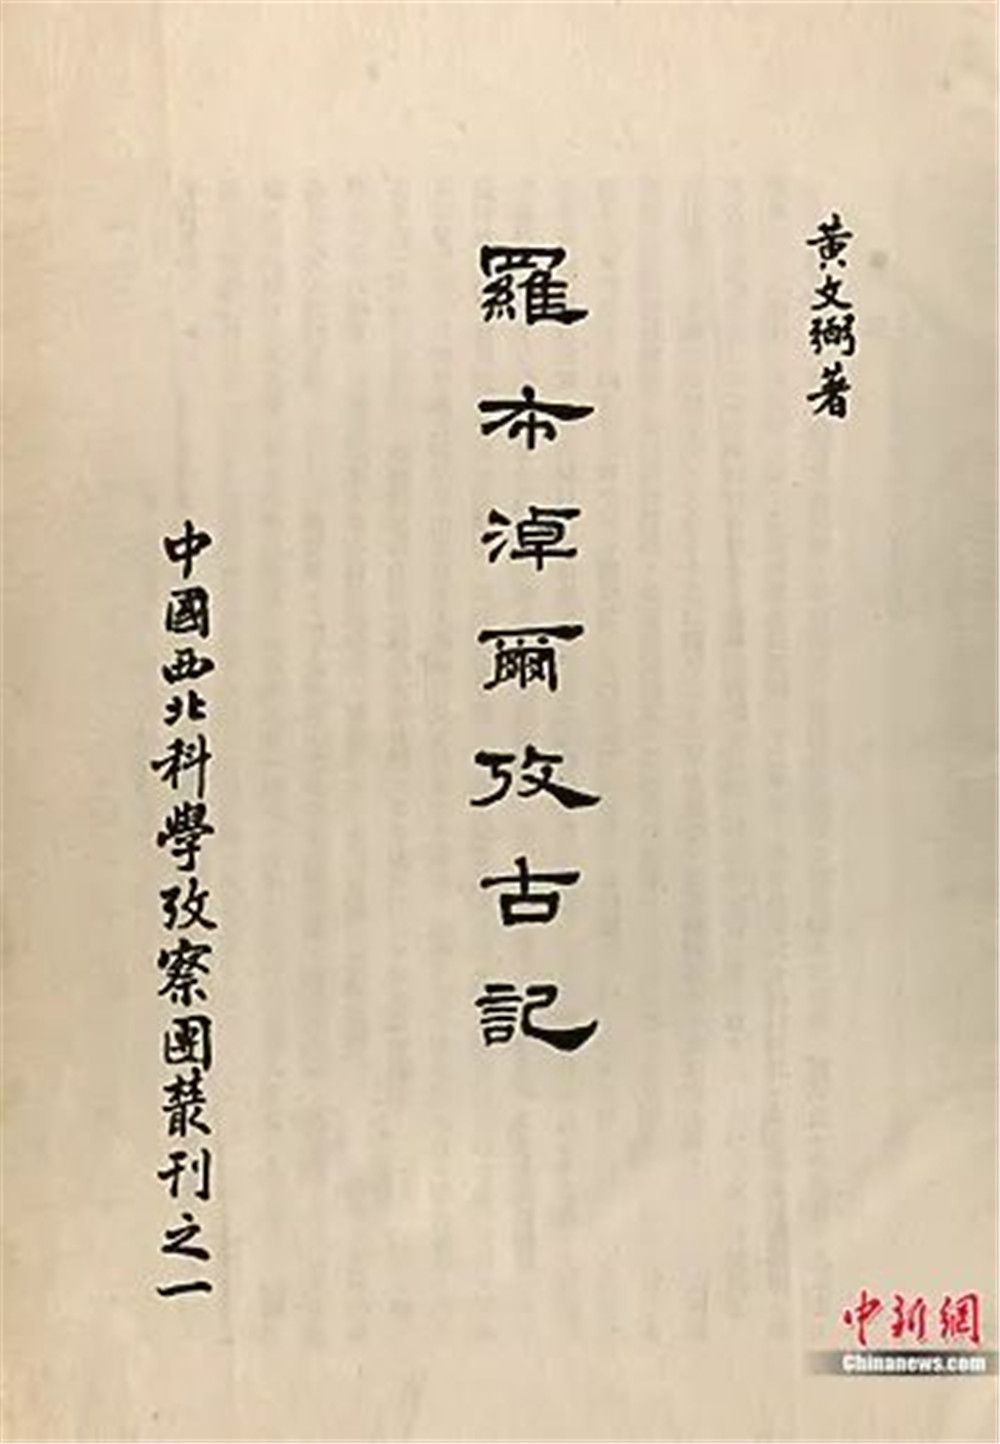 黃文弼著
羅布淖爾攷古記
中國西北科學攷察團叢刊之一
中新網
Chinanews.com